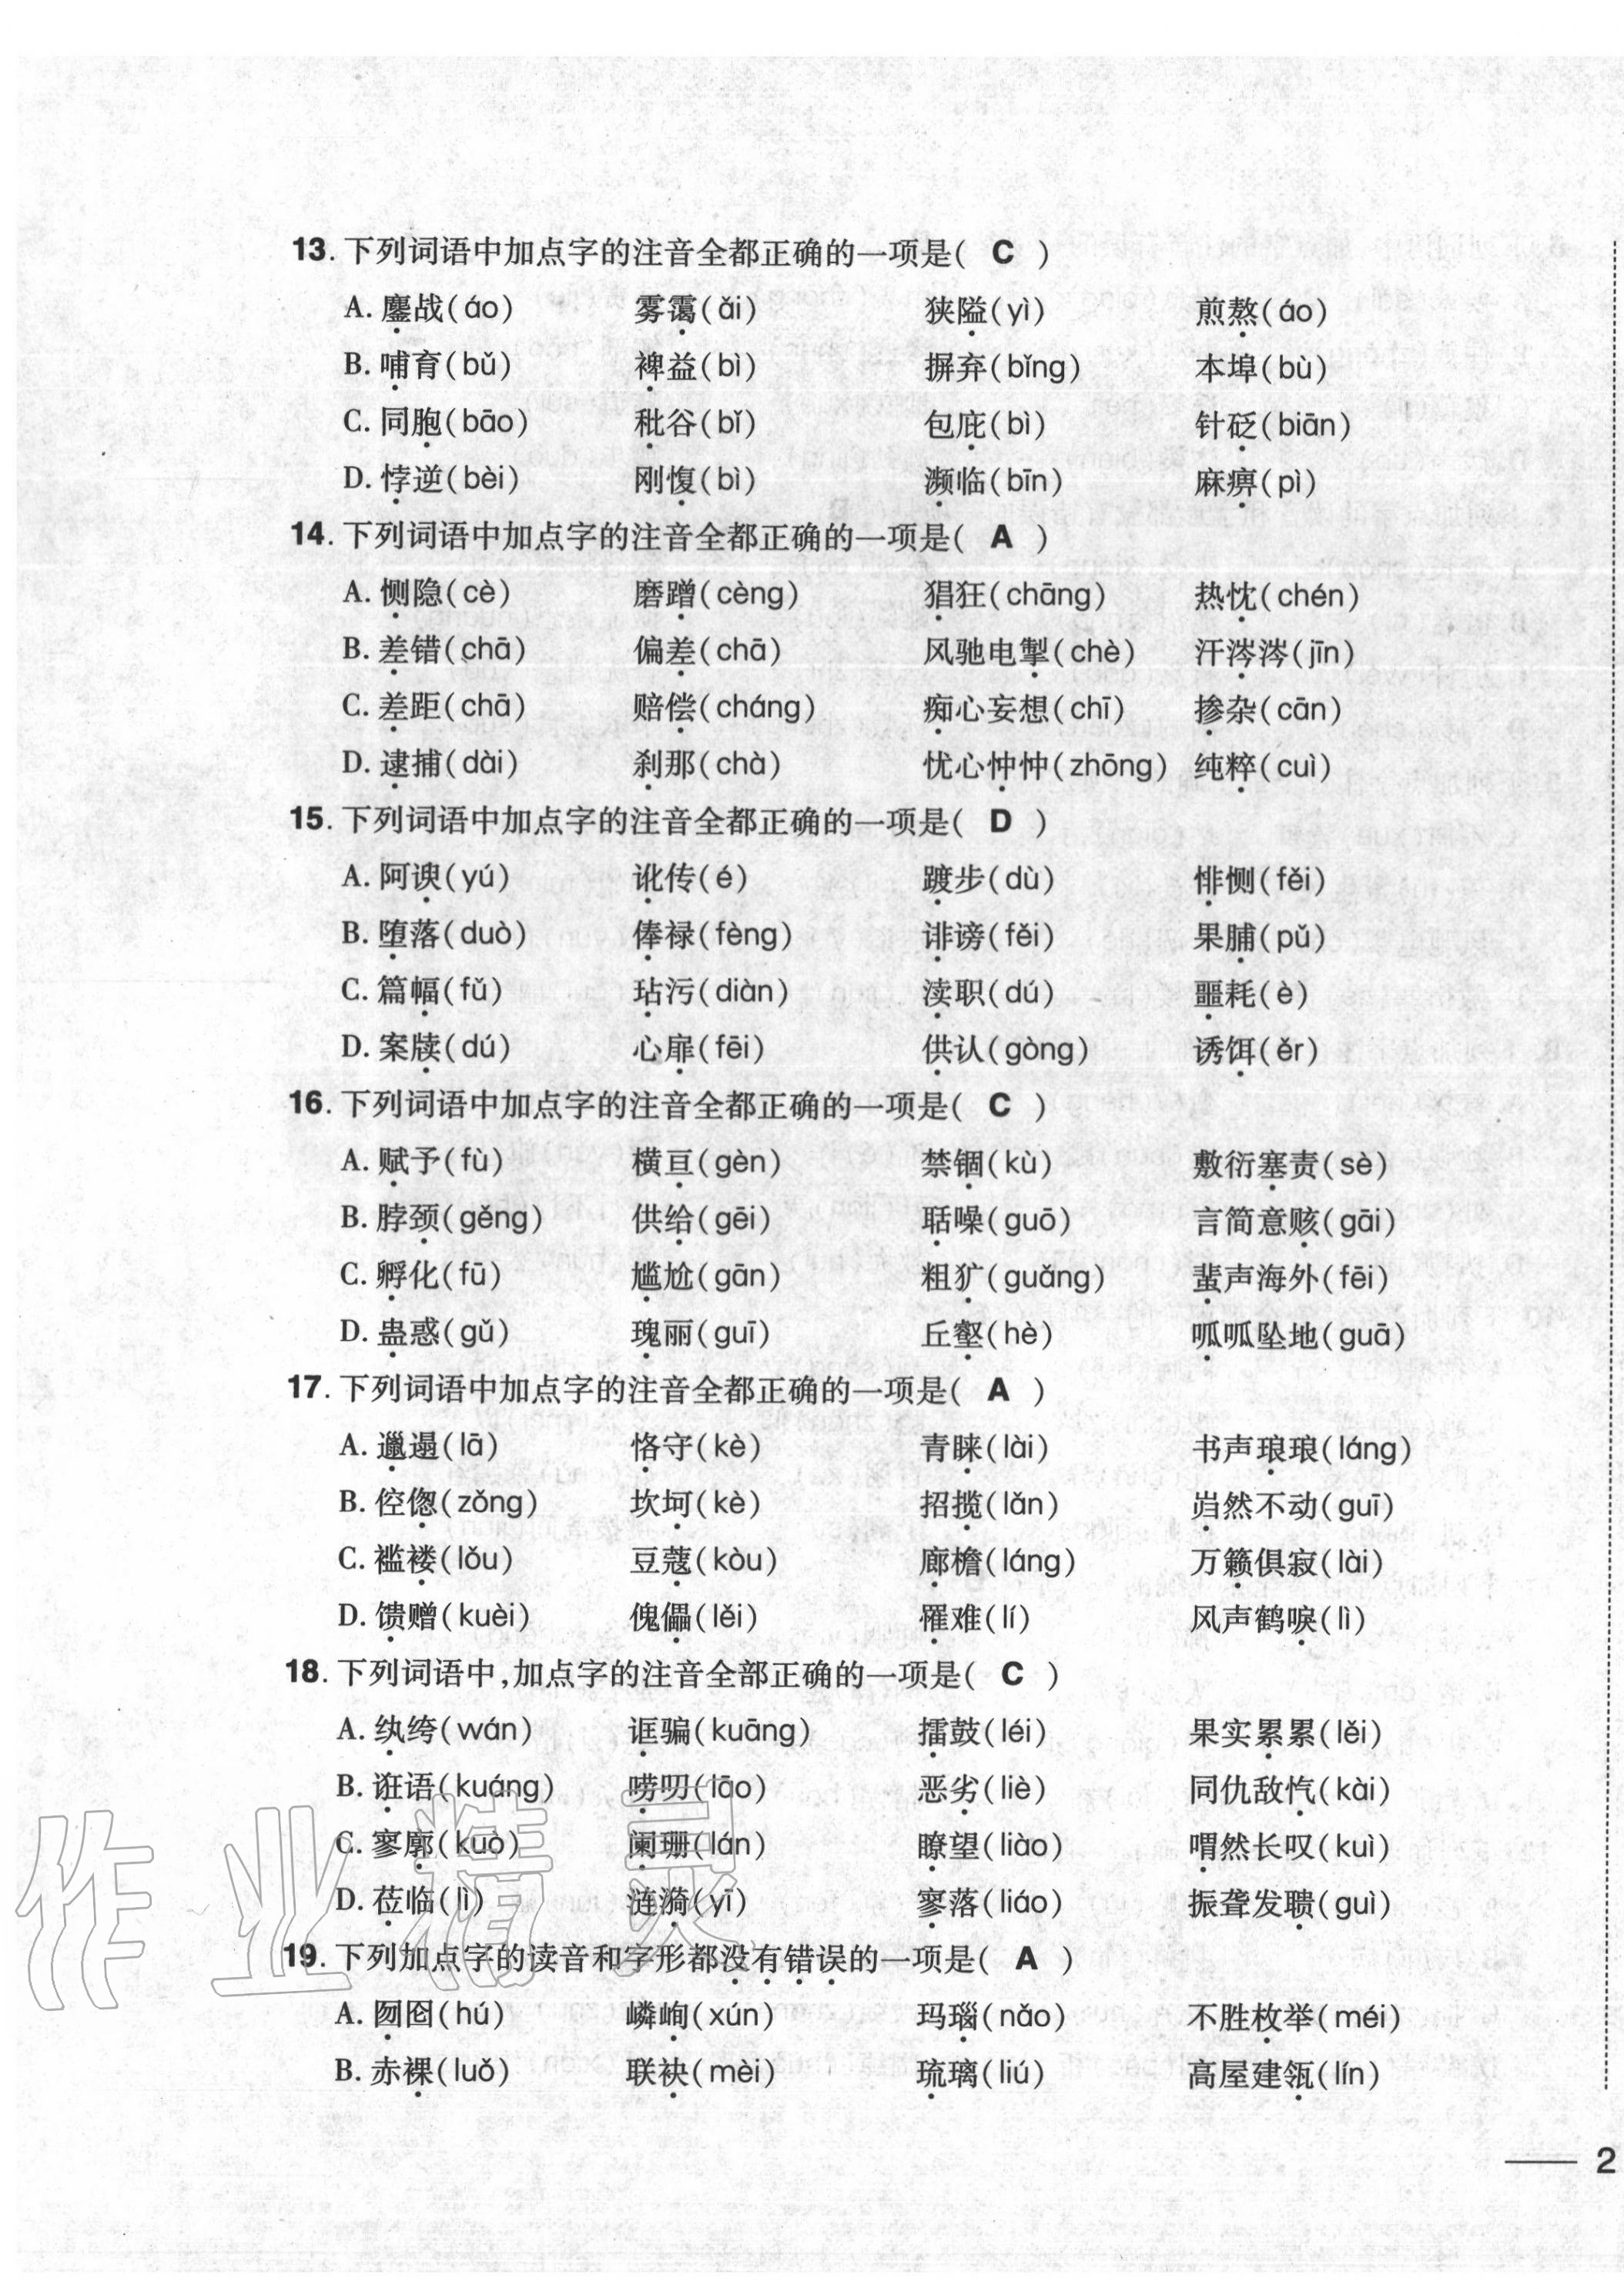 13. 下列词语中加点字的注音全都正确的一项是( C )
A. 鏖战(áo) 雾霭(ǎi) 狭隘(yì) 煎熬(áo)
B. 哺育(bǔ) 裨益(bì) 摒弃(bǐng) 本埠(bù)
C. 同胞(bāo) 秕谷(bǐ) 包庇(bì) 针砭(biān)
D. 悖逆(bèi) 刚愎(bì) 濒临(bīn) 麻痹(pì)
14. 下列词语中加点字的注音全都正确的一项是( A )
A. 恻隐(cè) 磨蹭(cèng) 猖狂(chāng) 热忱(chén)
B. 差错(chā) 偏差(chā) 风驰电掣(chè) 汗涔涔(jīn)
C. 差距(chā) 赔偿(cháng) 痴心妄想(chī) 掺杂(cān)
D. 逮捕(dài) 刹那(chà) 忧心忡忡(zhōng) 纯粹(cuì)
15. 下列词语中加点字的注音全都正确的一项是( D )
A. 阿谀(yú) 讹传(é) 踱步(dù) 悱恻(fěi)
B. 堕落(duò) 俸禄(fèng) 诽谤(fěi) 果脯(pǔ)
C. 篇幅(fǔ) 玷污(diàn) 渎职(dú) 噩耗(è)
D. 案牍(dú) 心扉(fēi) 供认(gòng) 诱饵(ěr)
16. 下列词语中加点字的注音全都正确的一项是( C )
A. 赋予(fù) 横亘(gèn) 禁锢(kù) 敷衍塞责(sè)
B. 脖颈(gěng) 供给(gēi) 聒噪(guō) 言简意赅(gāi)
C. 孵化(fū) 尴尬(gān) 粗犷(guǎng) 蜚声海外(fēi)
D. 蛊惑(gǔ) 瑰丽(guī) 丘壑(hè) 呱呱坠地(guā)
17. 下列词语中加点字的注音全都正确的一项是( A )
A. 邋遢(lā) 恪守(kè) 青睐(lài) 书声琅琅(láng)
B. 倥偬(zǒng) 坎坷(kè) 招揽(lǎn) 岿然不动(guī)
C. 褴褛(lǒu) 豆蔻(kòu) 廊檐(láng) 万籁俱寂(lài)
D. 馈赠(kuèi) 傀儡(lěi) 罹难(lí) 风声鹤唳(lì)
18. 下列词语中,加点字的注音全部正确的一项是( C )
A. 纨绔(wán) 诓骗(kuāng) 擂鼓(léi) 果实累累(lěi)
B. 诳语(kuáng) 唠叨(lāo) 恶劣(liè) 同仇敌忾(kài)
C. 寥廓(kuò) 阑珊(lán) 瞭望(liào) 喟然长叹(kuì)
D. 莅临(lì) 涟漪(yī) 寥落(liáo) 振聋发聩(guì)
19. 下列加点字的读音和字形都没有错误的一项是( A )
A. 囫囵(hú) 嶙峋(xún) 玛瑙(nǎo) 不胜枚举(méi)
B. 赤裸(luǒ) 联袂(mèi) 琉璃(liú) 高屋建瓴(lín)
2
作业精灵